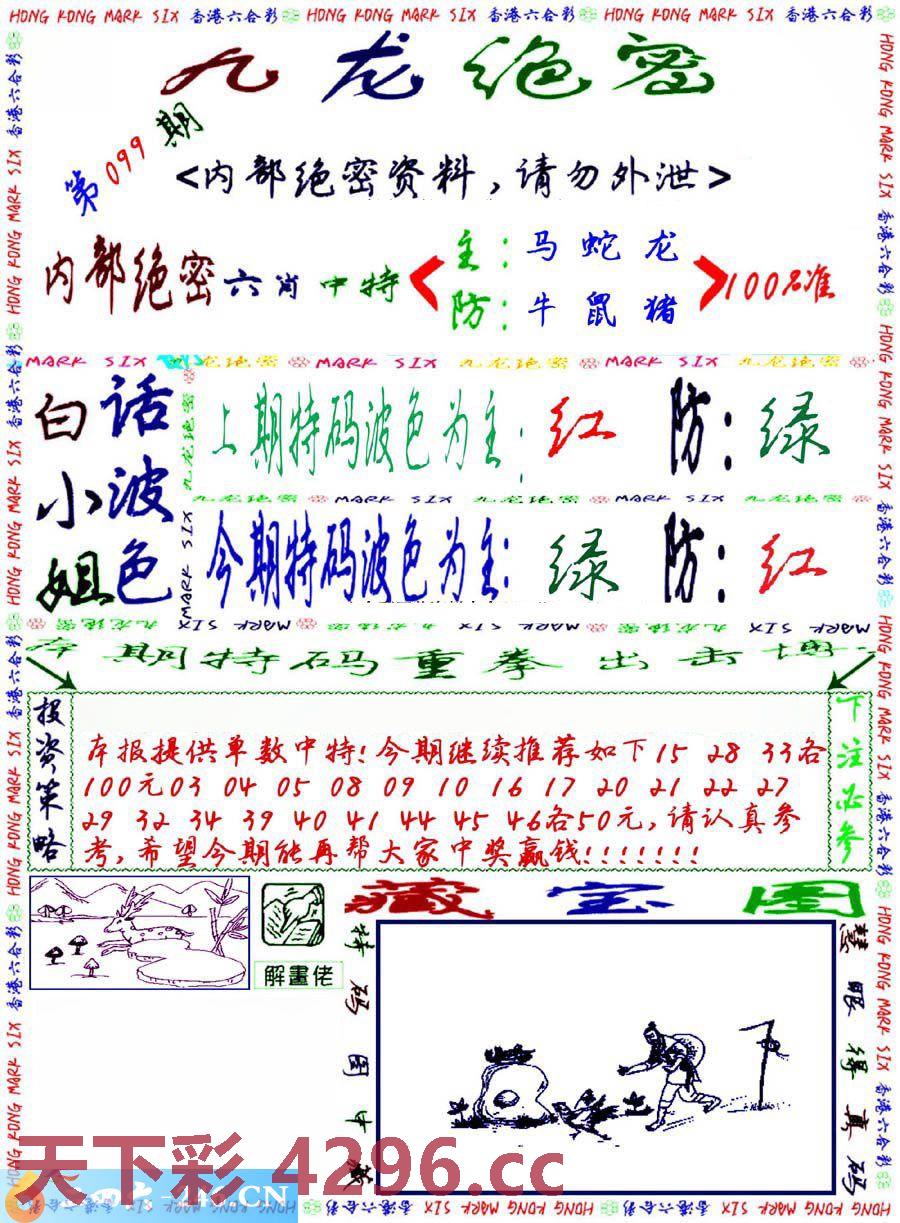 HONG KONG MARK SIX 香港六合彩 HONG KONG MARK SIX 香港六合彩 HONG KONG MARK SIX 香港六合彩
九龙绝密
第099期
<内部绝密资料,请勿外泄>
内部绝密六肖中特
主:马蛇龙
防:牛鼠猪
100%准
MARK SIX 九龙绝密 MARK SIX 九龙绝密 MARK SIX 九龙绝密
白小姐
话波色
上期特码波色为主:红 防:绿
九龙绝密 MARK SIX 九龙绝密 MARK SIX 九龙绝密
今期特码波色为主:绿 防:红
九龙绝密 MARK SIX 九龙绝密 MARK SIX 九龙绝密 MARK SIX
期特码重拳出击
投资策略
本报提供单数中特!今期继续推荐如下15 28 33各
100元03 04 05 08 09 10 16 17 20 21 22 27
29 32 34 39 40 41 44 45 46各50元,请认真参
考,希望今期能再帮大家中奖赢钱!!!!!!!
下注必参
解畫佬
藏宝图
特码图中
慧眼得真码
天下彩 4296.cc